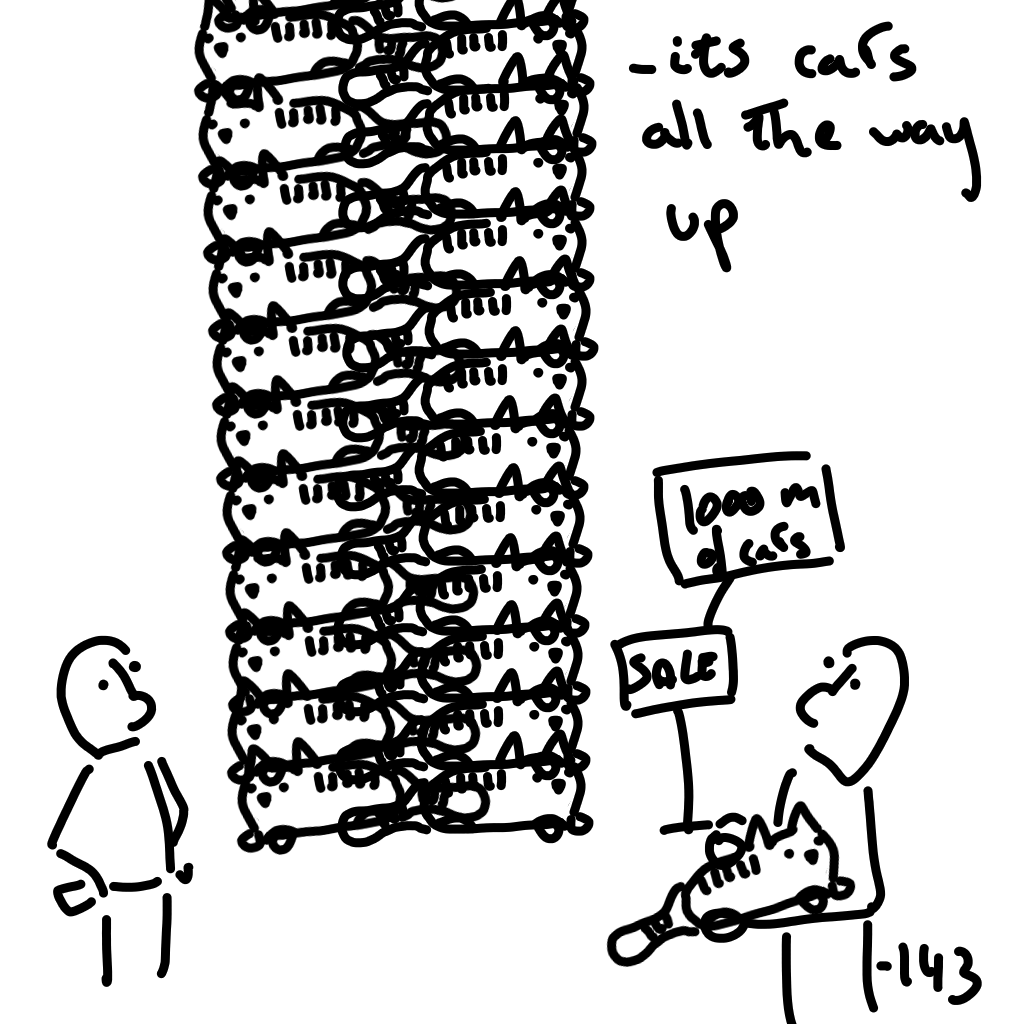 - its cars
all the way
up
1000 m
of cars
SALE
-143